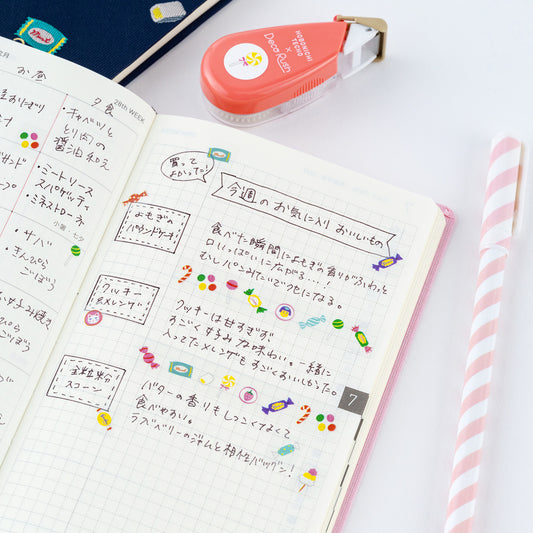 HOBONICHI
TECHO
×
Deco Rush
28th WEEK
お昼
夕食
・キャベツと
とり肉の
醤油和え
・ミートソース
スパゲッティ
・ミネストローネ
・サバ
・きんぴら
ごぼう
買って
よかった!
今週のお気に入りおいしいもの
よもぎの
パウンドケーキ
食べた瞬間によもぎの香りがふわっと
口いっぱいに広がる…!
むしパンみたいでクセになる。
クッキー
メレンゲ
クッキーは甘すぎず、
すごく好みな味わい。一緒に
入ってたメレンゲもすごくおいしかった。
全粒粉
スコーン
バターの香りもしつこくなくて
食べやすい。
ラズベリーのジャムと相性バツグン!
7